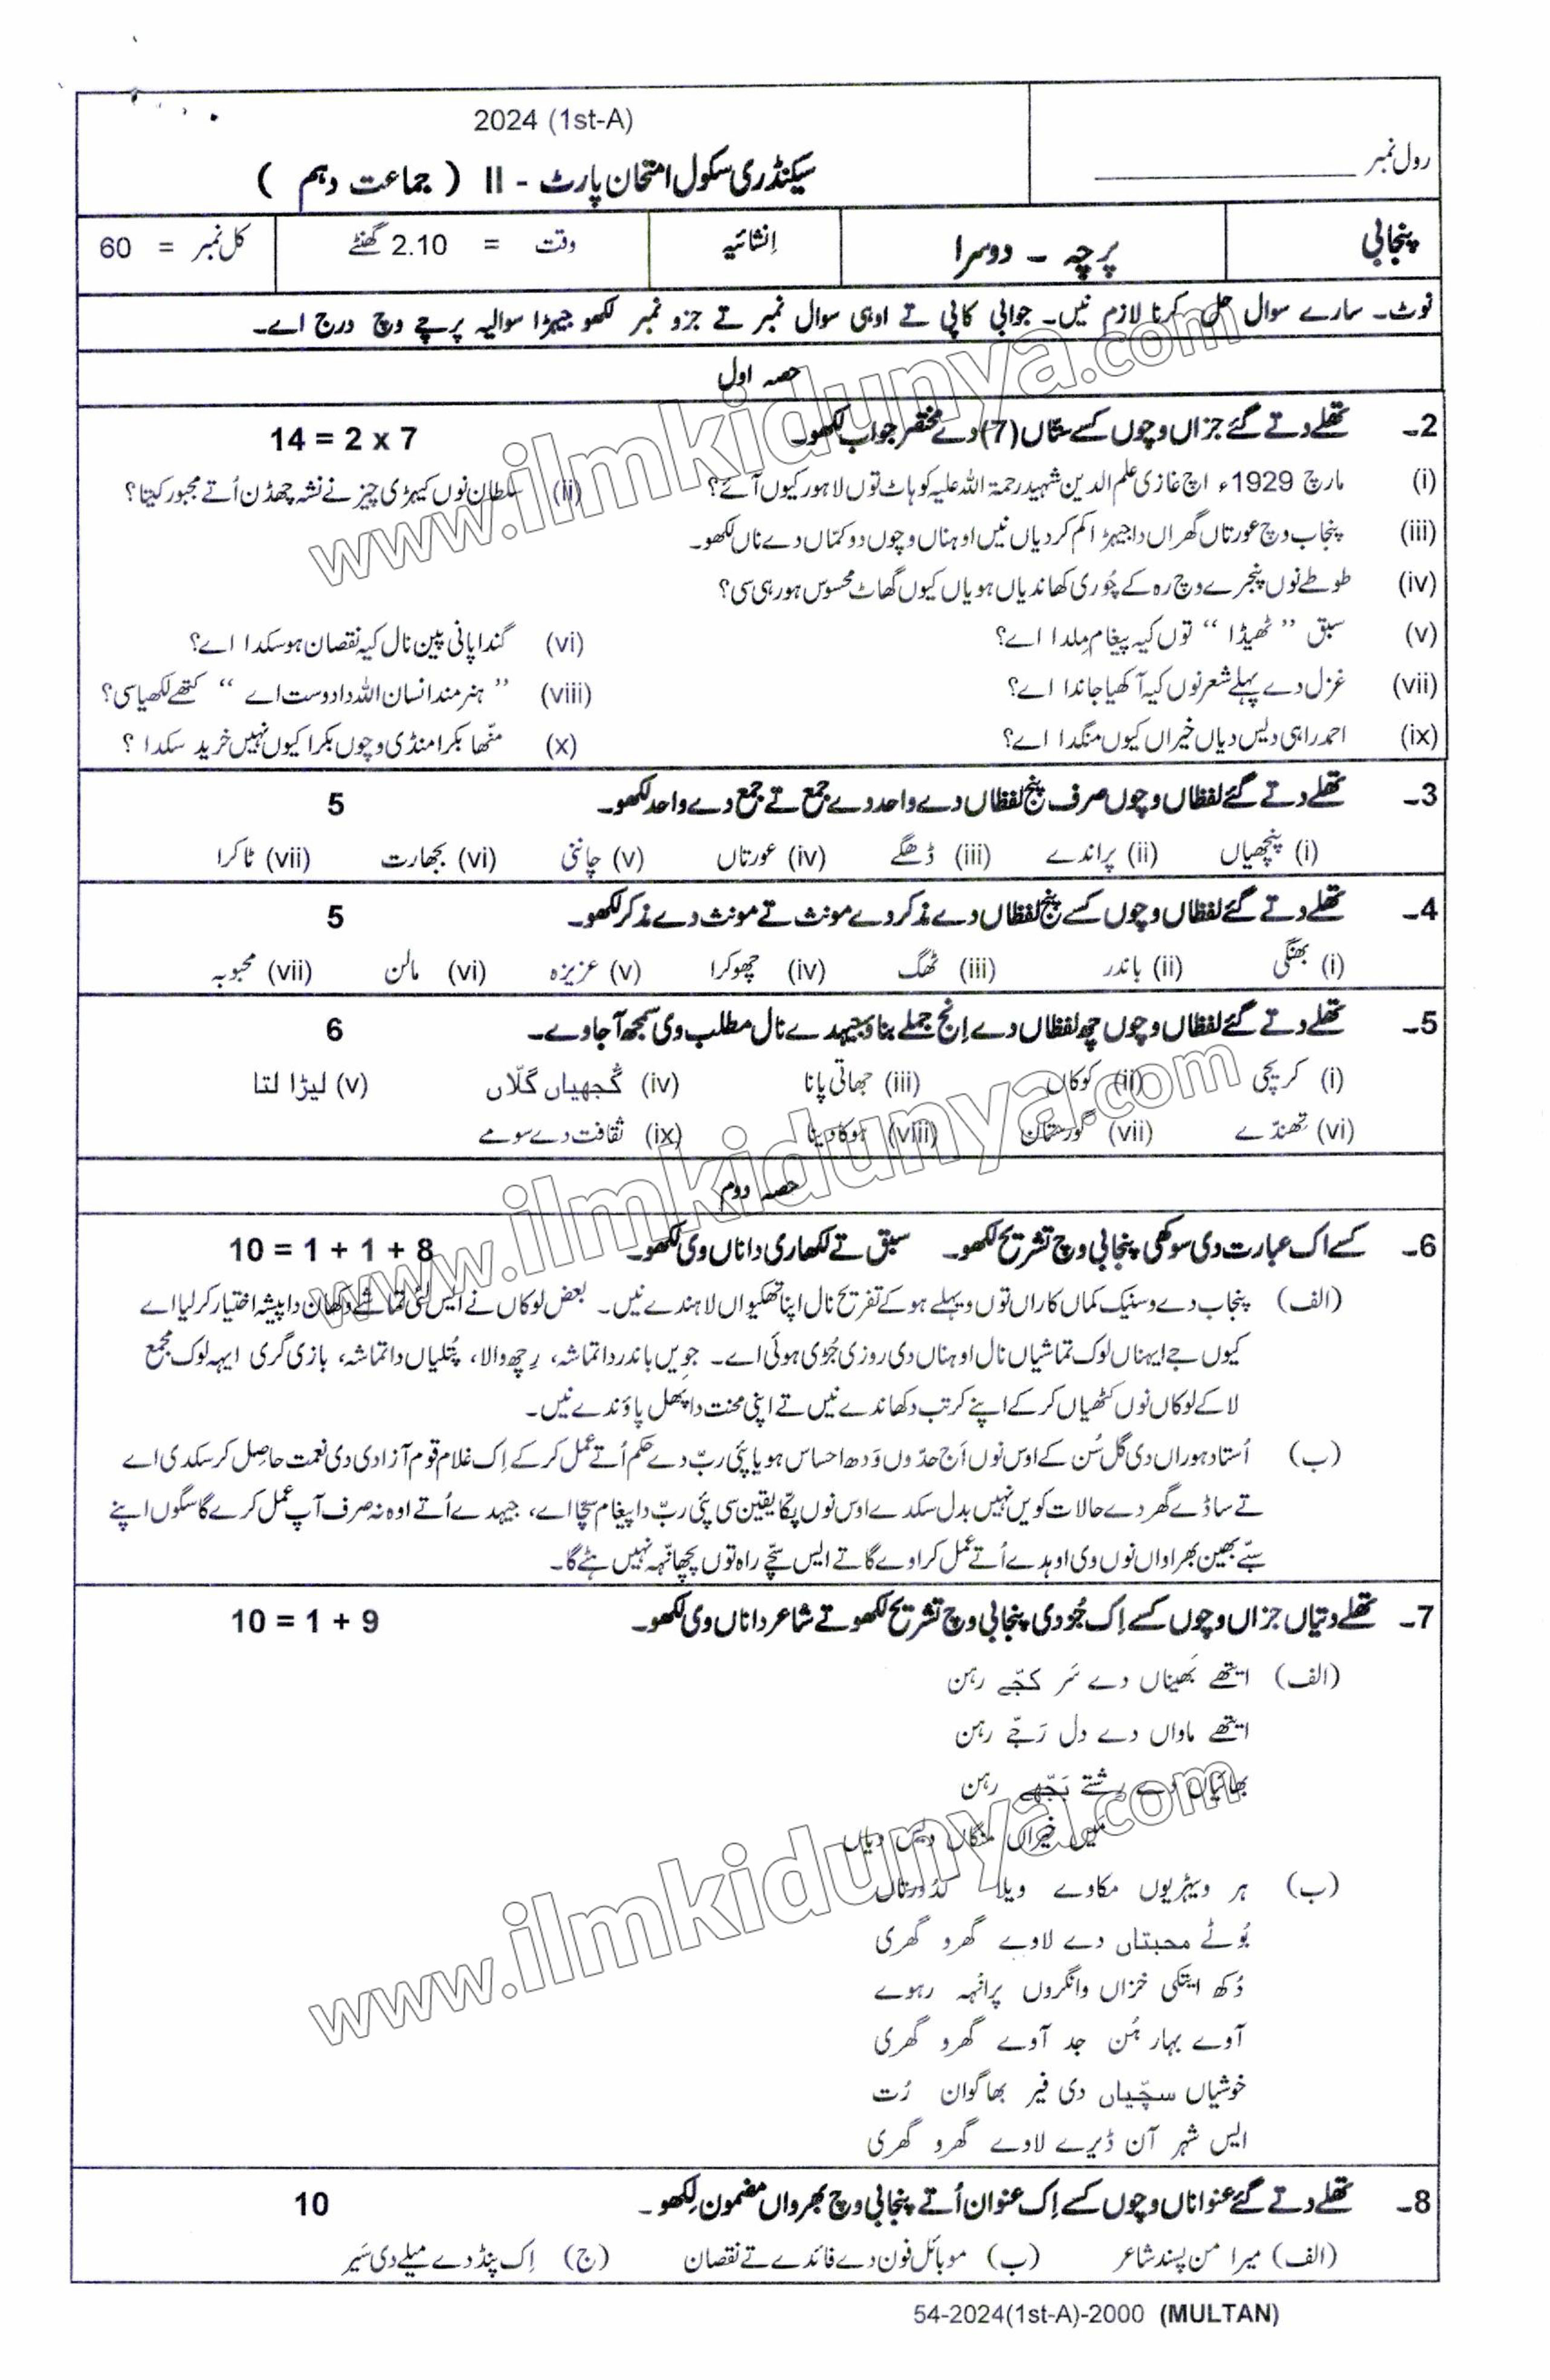 2024 (1st-A)
رول نمبر
سیکنڈری سکول امتحان پارٹ - II ( جماعت دہم )
پنجابی پرچہ - دوسرا اِنشائیہ وقت = 2.10 گھنٹے کل نمبر = 60
نوٹ۔ سارے سوال حل کرنا لازم نیں۔ جوابی کاپی تے اوہی سوال نمبر تے جزو نمبر لکھو جیہڑا سوالیہ پرچے وچ درج اے۔
حصہ اول
2۔ تھلے دتے گئے جزاں وچوں کسے ستاں (7) دے مختصر جواب لکھو۔ 14 = 2 x 7
(i) مارچ 1929ء اچ غازی علم الدین شہید رحمۃ اللہ علیہ کوہاٹ توں لاہور کیوں آئے؟ (ii) سلطان نوں کیہڑی چیز نے نشہ چھڈن اُتے مجبور کیتا؟
(iii) پنجاب وچ عورتاں گھراں دا جیہڑا کم کردیاں نیں اوہناں وچوں دو کمّاں دے ناں لکھو۔
(iv) طوطے نوں پنجرے وچ رہ کے چُوری کھاندیاں ہویاں کیوں گھاٹ محسوس ہو رہی سی؟
(v) سبق ” ٹھیڈا “ توں کیہ پیغام مِلدا اے؟ (vi) گندا پانی پین نال کیہ نقصان ہو سکدا اے؟
(vii) غزل دے پہلے شعر نوں کیہ آکھیا جاندا اے؟ (viii) ” ہنر مند انسان اللہ دا دوست اے “ کتھے لکھیا سی؟
(ix) احمد راہی دیس دیاں خیراں کیوں منگدا اے؟ (x) منّھا بکرا منڈی وچوں بکرا کیوں نہیں خرید سکدا ؟
3۔ تھلے دتے گئے لفظاں وچوں صرف پنج لفظاں دے واحد دے جمع تے جمع دے واحد لکھو۔ 5
(i) پنچھیاں (ii) پراندے (iii) ڈھگے (iv) عورتاں (v) چاننی (vi) بجھارت (vii) ٹاکرا
4۔ تھلے دتے گئے لفظاں وچوں کسے پنج لفظاں دے مذکر دے مونث تے مونث دے مذکر لکھو۔ 5
(i) بھنگی (ii) باندر (iii) ٹھگ (iv) چھوکرا (v) عزیزہ (vi) مالن (vii) محبوبہ
5۔ تھلے دتے گئے لفظاں وچوں چھ لفظاں دے اِنج جملے بناؤ جیہدے نال مطلب وی سمجھ آ جاوے۔ 6
(i) کریچی (ii) کوکاں (iii) جھاتی پانا (iv) گُجھیاں گلّاں (v) لیڑا لتا
(vi) تھنڈے (vii) گورستان (viii) ہوکا دینا (ix) ثقافت دے سومے
حصہ دوم
6۔ کسے اک عبارت دی سوکھی پنجابی وچ تشریح لکھو۔ سبق تے لکھاری دا ناں وی لکھو۔ 10 = 1 + 1 + 8
(الف) پنجاب دے وسنیک کماں کاراں توں ویہلے ہو کے تفریح نال اپنا تھکیواں لاہندے نیں۔ بعض لوکاں نے ایس لئی تماشے دکھان دا پیشہ اختیار کر لیا اے
کیوں جے ایہناں لوک تماشیاں نال اوہناں دی روزی جُڑی ہوئی اے۔ جویں باندر دا تماشہ، رِچھ والا، پُتلیاں دا تماشہ، بازی گری ایہہ لوک مجمع
لا کے لوکاں نوں کٹھیاں کر کے اپنے کرتب دکھاندے نیں تے اپنی محنت دا پھل پاؤندے نیں۔
(ب) اُستاد ہوراں دی گل سُن کے اوس نوں اَج حدّوں وَدھ احساس ہویا پئی ربّ دے حکم اُتے عمل کر کے اِک غلام قوم آزادی دی نعمت حاصِل کر سکدی اے
تے ساڈے گھر دے حالات کویں نہیں بدل سکدے اوس نوں پکّا یقین سی پئی ربّ دا پیغام سچّا اے، جیہدے اُتے اوہ نہ صرف آپ عمل کرے گا سگوں اپنے
سبّے بھین بھراواں نوں وی اوہدے اُتے عمل کراوے گا تے ایس سچّے راہ توں پچھانہہ نہیں ہٹے گا۔
7۔ تھلے دتیاں جزاں وچوں کسے اِک جُز دی پنجابی وچ تشریح لکھو تے شاعر دا ناں وی لکھو۔ 10 = 1 + 9
(الف) ایتھے بھیناں دے سَر کجّے رہن
ایتھے ماواں دے دل رَجّے رہن
بھائیاں دے رشتے بَجّھے رہن
میں خیراں منگاں دیس دیاں
(ب) ہر ویہڑیوں مکاوے ویلا کدُورتاں
بُوٹے محبتاں دے لاوے گھرو گھری
دُکھ ایتکی خزاں وانگروں پرانہہ رہوے
آوے بہار ہُن جد آوے گھرو گھری
خوشیاں سچّیاں دی فیر بھاگوان رُت
ایس شہر آن ڈیرے لاوے گھرو گھری
8۔ تھلے دتے گئے عنواناں وچوں کسے اِک عنوان اُتے پنجابی وچ بھرواں مضمون لِکھو۔ 10
(الف) میرا من پسند شاعر (ب) موبائل فون دے فائدے تے نقصان (ج) اِک پنڈ دے میلے دی سَیر
54-2024(1st-A)-2000 (MULTAN)
www.ilmkidunya.com
www.ilmkidunya.com
www.ilmkidunya.com